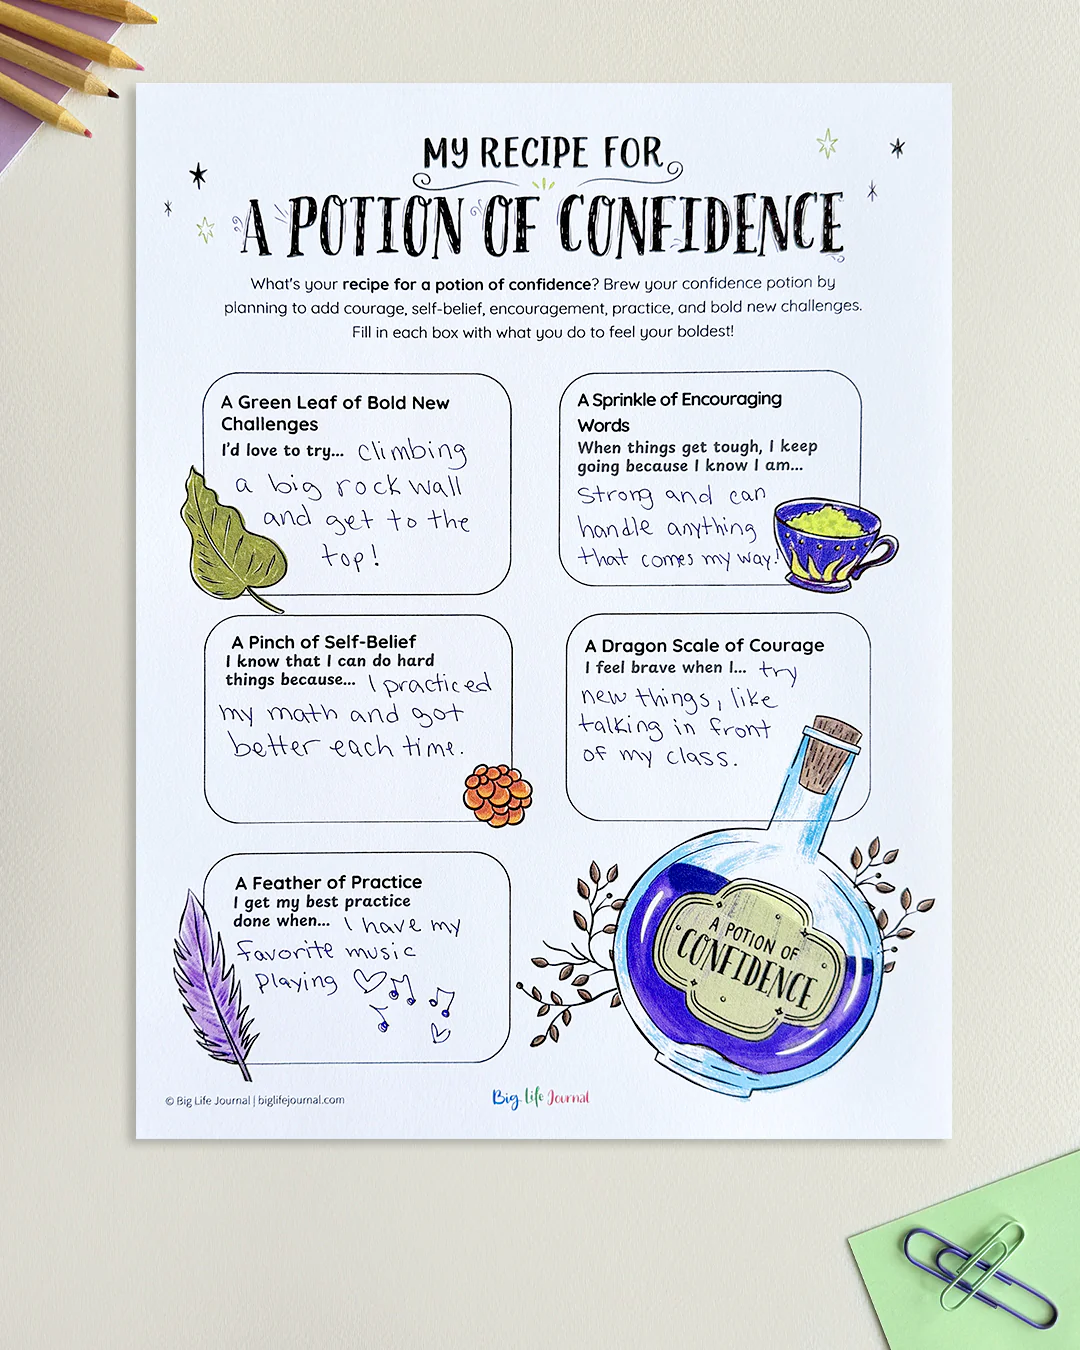 MY RECIPE FOR
A POTION OF CONFIDENCE
What's your recipe for a potion of confidence? Brew your confidence potion by
planning to add courage, self-belief, encouragement, practice, and bold new challenges.
Fill in each box with what you do to feel your boldest!
A Green Leaf of Bold New
Challenges
I'd love to try... climbing
a big rock wall
and get to the
top!
A Sprinkle of Encouraging
Words
When things get tough, I keep
going because I know I am...
Strong and can
handle anything
that comes my way!
A Pinch of Self-Belief
I know that I can do hard
things because... I practiced
my math and got
better each time.
A Dragon Scale of Courage
I feel brave when I... try
new things, like
talking in front
of my class.
A Feather of Practice
I get my best practice
done when... I have my
favorite music
playing
A POTION OF
CONFIDENCE
© Big Life Journal | biglifejournal.com
Big Life Journal